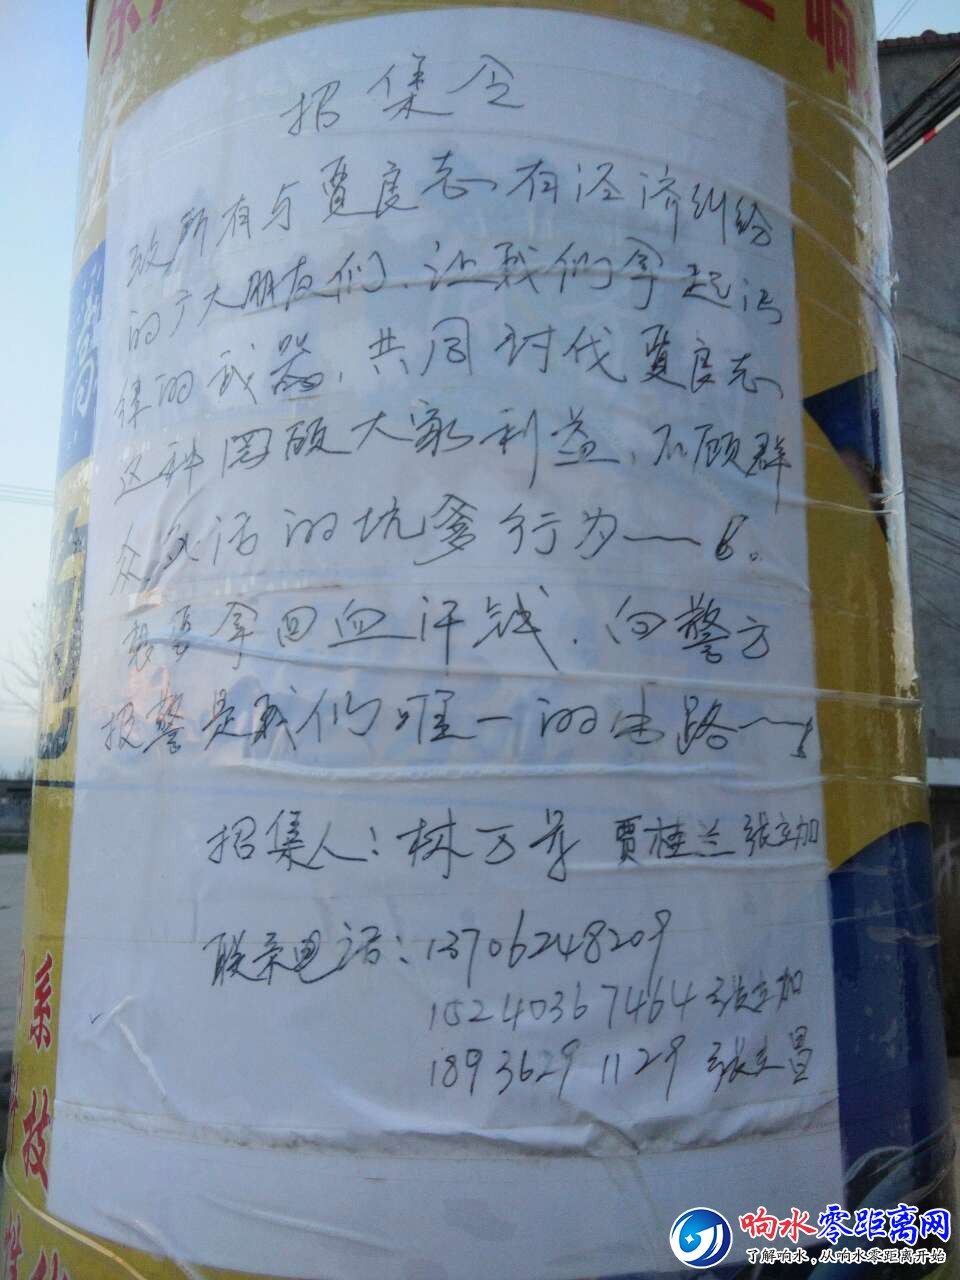 招集令
致所有与贾良志有泾济纠纷
的广大朋友们、让我们拿起法
律的武器、共同讨伐贾良志
这种罔顾大家利益、不顾群
众生活的坑爹行为——。
想要拿回血汗钱、向警方
报警是我们唯一的出路——
招集人：林万
贾桂兰 张立加
联系电话：13706248209
15240367464 张立加
18936291129 张文昌
系
技
响
响水零距离网
了解响水，从响水零距离开始